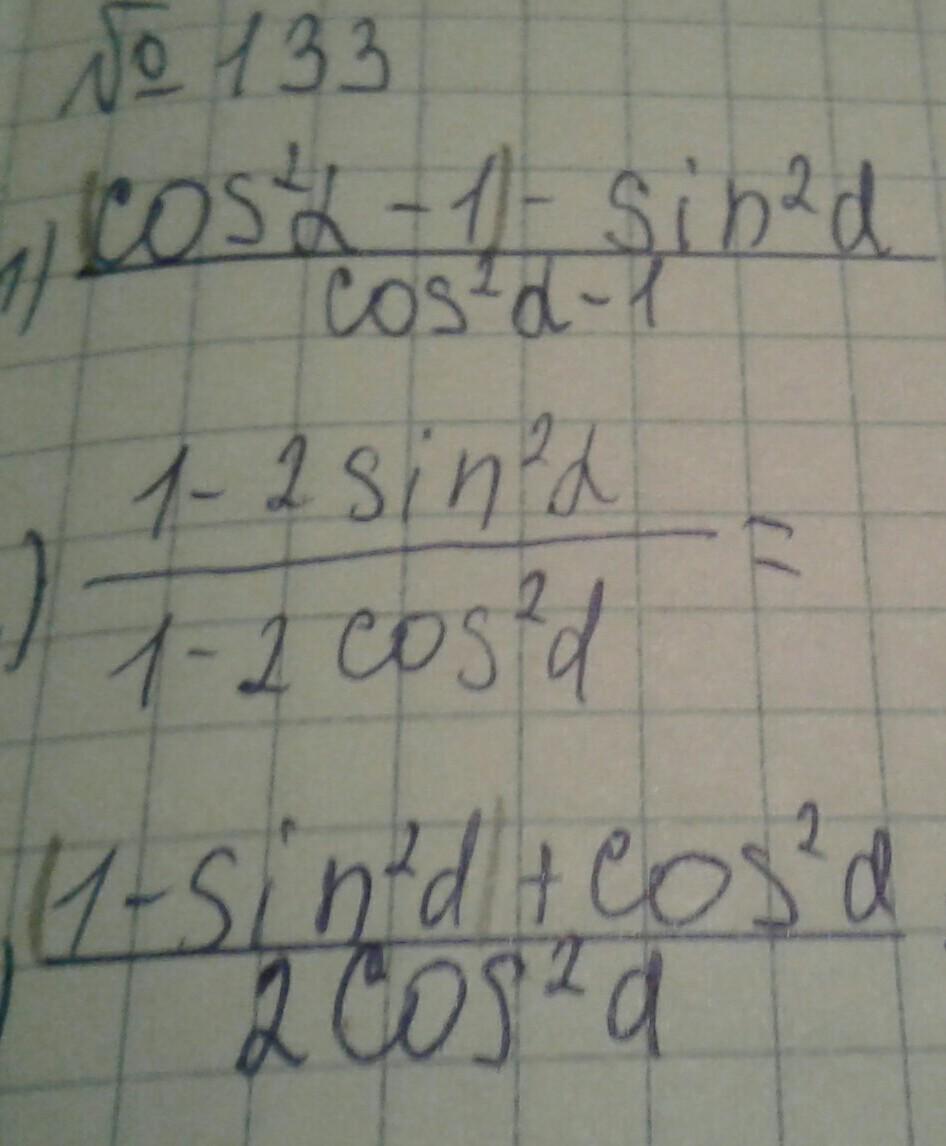 № 133
1) (cos²α - 1) - sin²α
cos²α - 1
) 1 - 2 sin²α =
1 - 2 cos²α
) (1 - sin²α) + cos²α
2 cos²α